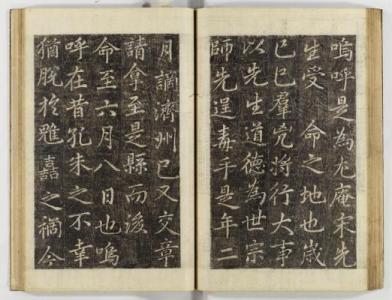 嗚呼是為尤庵宋先
生受 命之地也歲
己巳羣兇將行大事
以先生道德為世宗
師先逞毒手是年二
月謫濟州已又交章
請拿至是縣而後
命至六月八日也嗚
呼在昔孔朱之不幸
猶脫於雖嘉之禍今